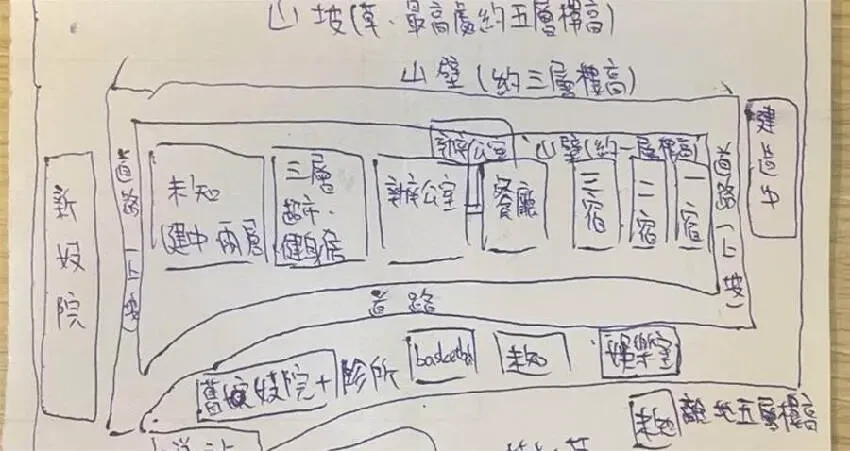 山坡(草、最高處約五層樓高)
山壁(約三層樓高)
辦公室
山壁(約一層樓高)
建造中
新妓院
道路(上坡)
未知
建中 兩層
三層
超市、
健身房
辦公室
餐廳
三宿
二宿
一宿
道路(上坡)
道路
舊妓院+診所
basketball
未知
娛樂室
未知
離地五層樓高